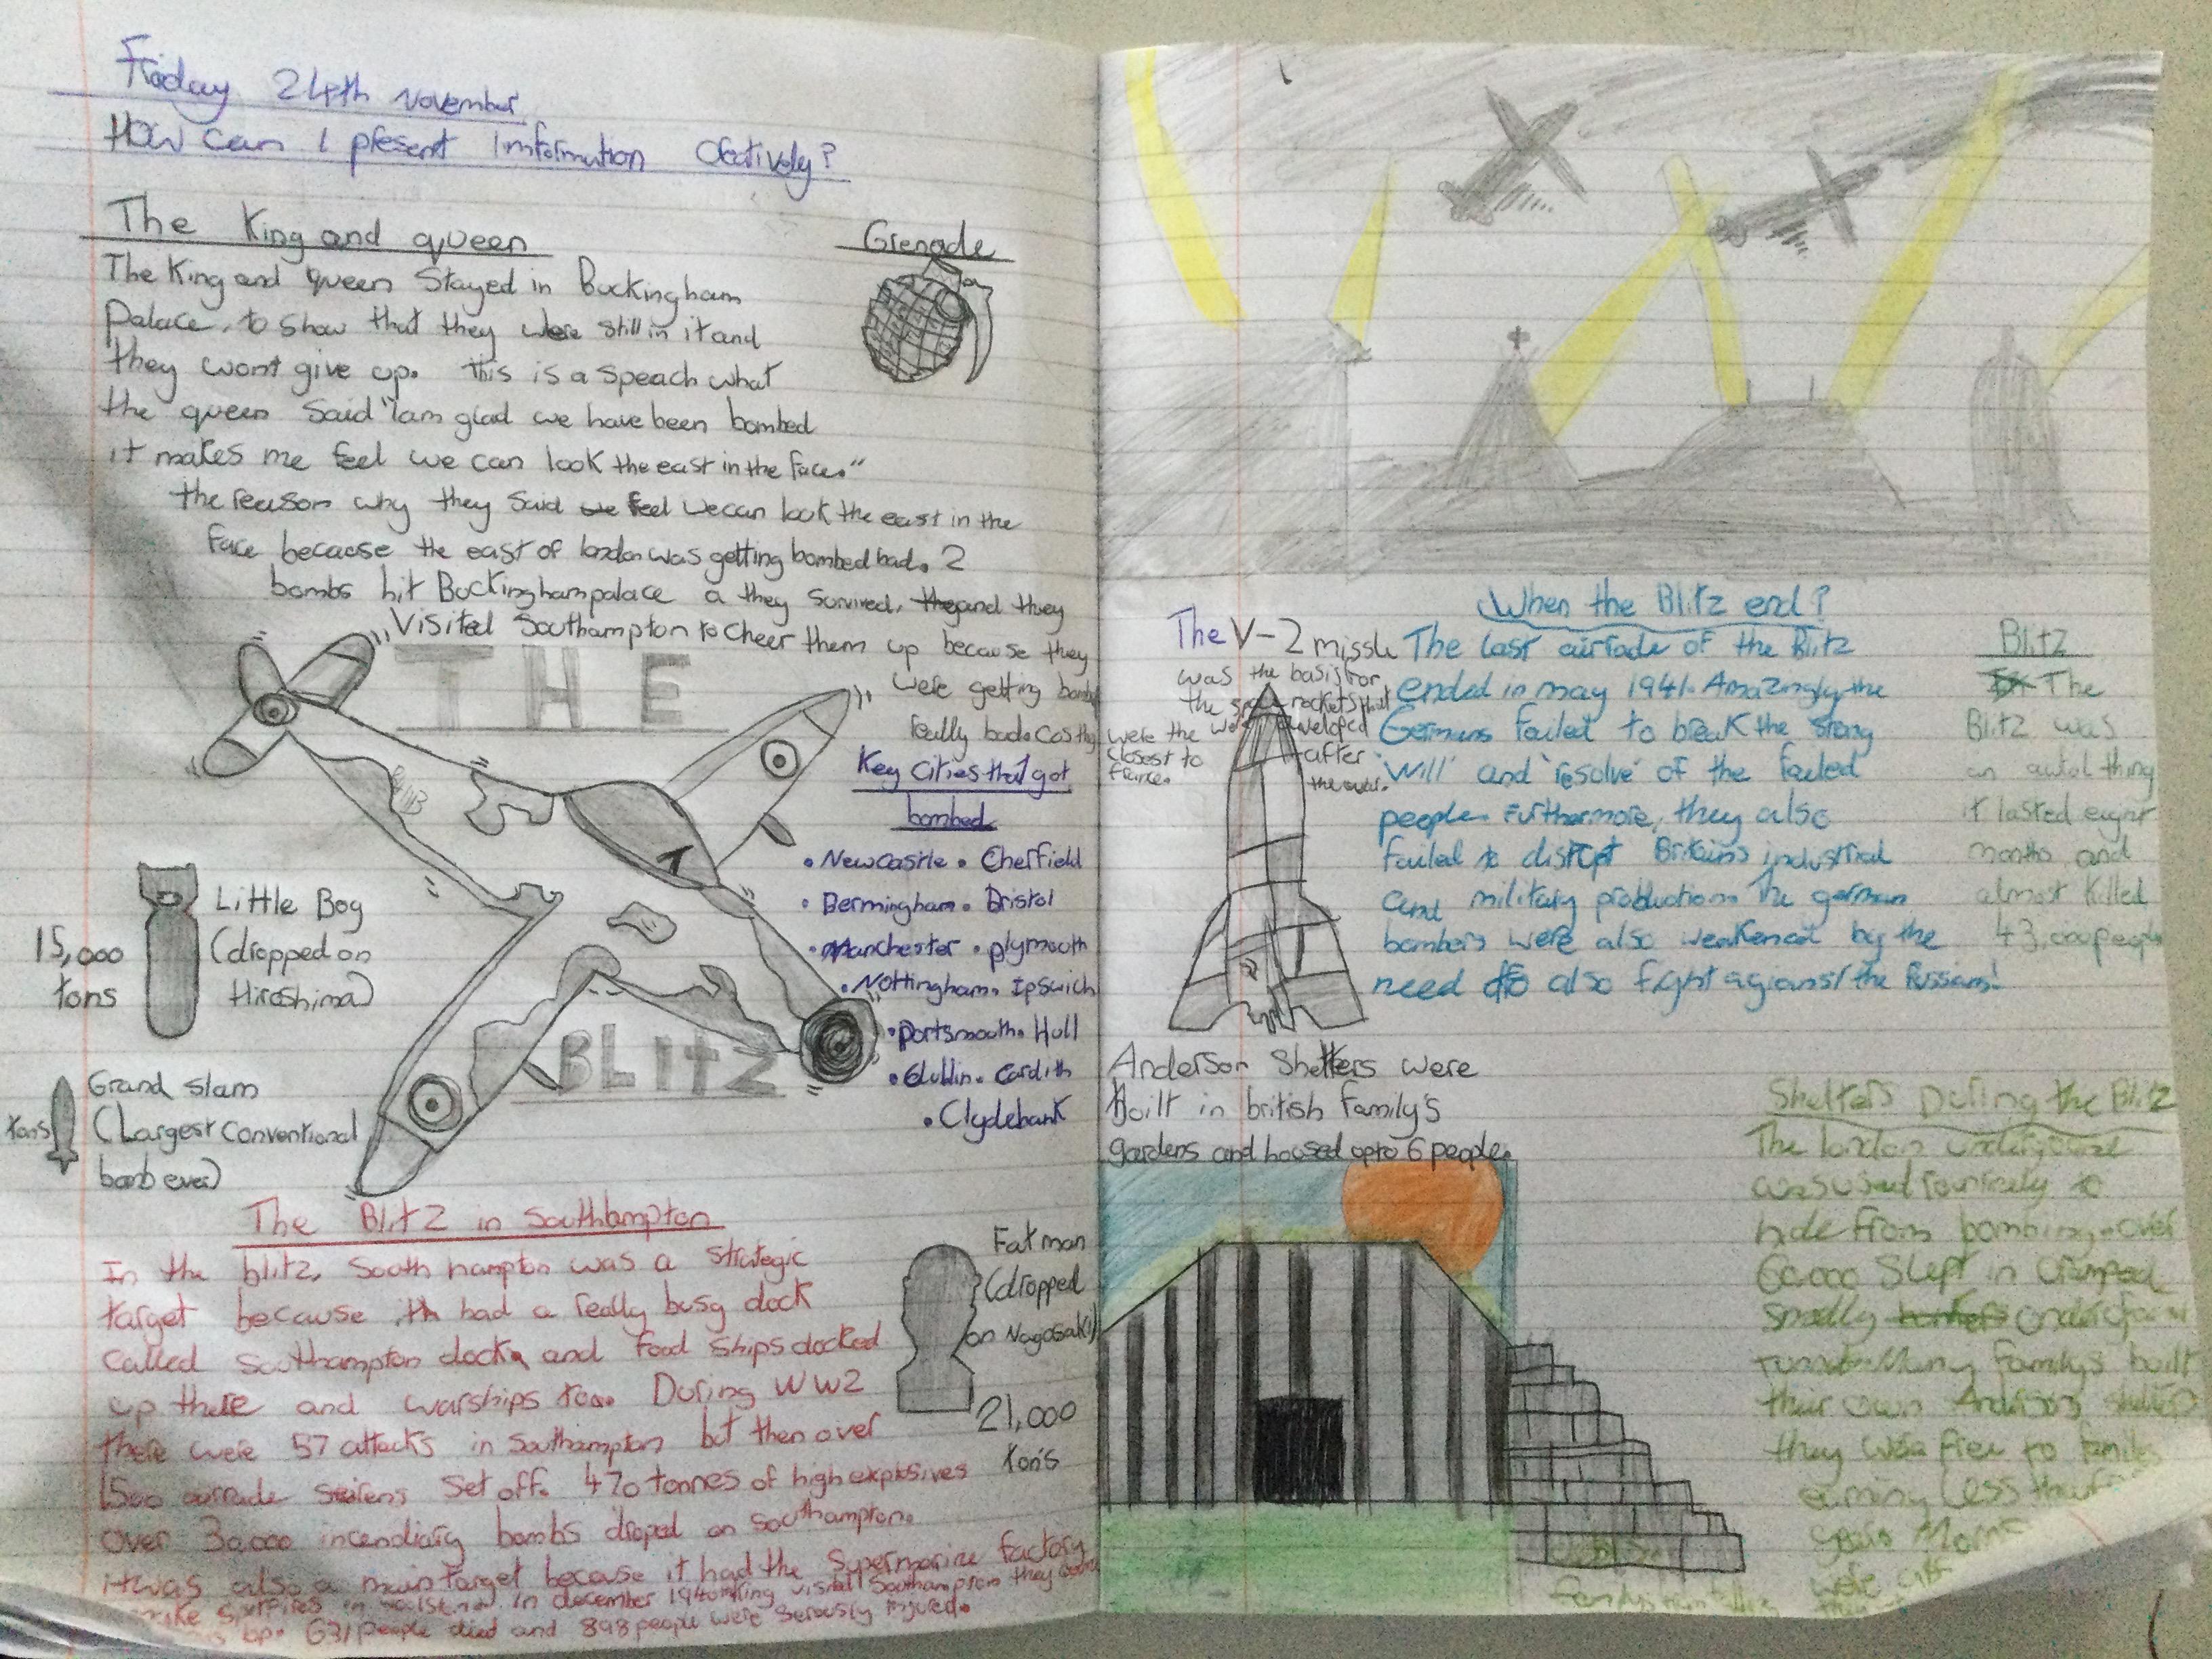 Friday 24th November
How can I present imformation creatively?
The King and queen
The King and queen stayed in Buckingham
Palace, to show that they were still in it and
they wont give up. This is a speach what
the queen said "I am glad we have been bombed
it makes me feel we can look the east in the face."
the reason why they said we feel we can look the east in the
face because the east of london was getting bombed bad. 2
bombs hit Buckingham palace a they survived, the and they
visited Southampton to cheer them up because they
were getting bombed
really bad. Cos they
were the
closest to
france.
Grenade
THE
BLITZ
Key Cities that got
bombed
• Newcastle • Cherfield
• Bermingham • Bristol
• Manchester • plymouth
• Nottingham • Ipswich
• Portsmouth • Hull
• dublin • Cardith
• Clydebank
15,000
tons
Little Boy
(dropped on
Hiroshima)
tons
Grand slam
(Largest conventional
bomb ever)
The Blitz in Southampton
In the blitz, South hampton was a strategic
target because ith had a really busy dock
called Southampton dock, and food ships docked
up there and warships too. During WW2
there were 57 attacks in Southampton but then over
1500 airrade sirens set off. 470 tonnes of high explosives
over 30,000 incendiary bombs droped on Southampton.
it was also a main target because it had the Supermarine factory
in december 1940 King visited Southampton they
up. 631 people died and 898 people were seriously injured.
Fat man
(dropped
on Nagasaki)
21,000
ton's
The V-2 missle
was the basis for
the rockets that
were developed
after
the war.
When the Blitz end?
The last airrade of the Blitz
ended in may 1941. Amazingly the
Germans failed to break the strong
'will' and 'resolve' of the failed
people. Furthermore, they also
failed to distrupt Britains industrial
and military production. The german
bombers were also weakened by the
need to also fight agianst the Russians!
Blitz
The
Blitz was
an awful thing
it lasted eight
months and
almost killed
43,000 people
Anderson Shelters were
built in british family's
gardens and housed upto 6 people.
Shelters During the Blitz
The london underground
was used routinely to
hide from bombing. over
60,000 slept in cramped
smelly bunkers underground
Many family's built
their own Anderson shelters
they were free to families
earning less than